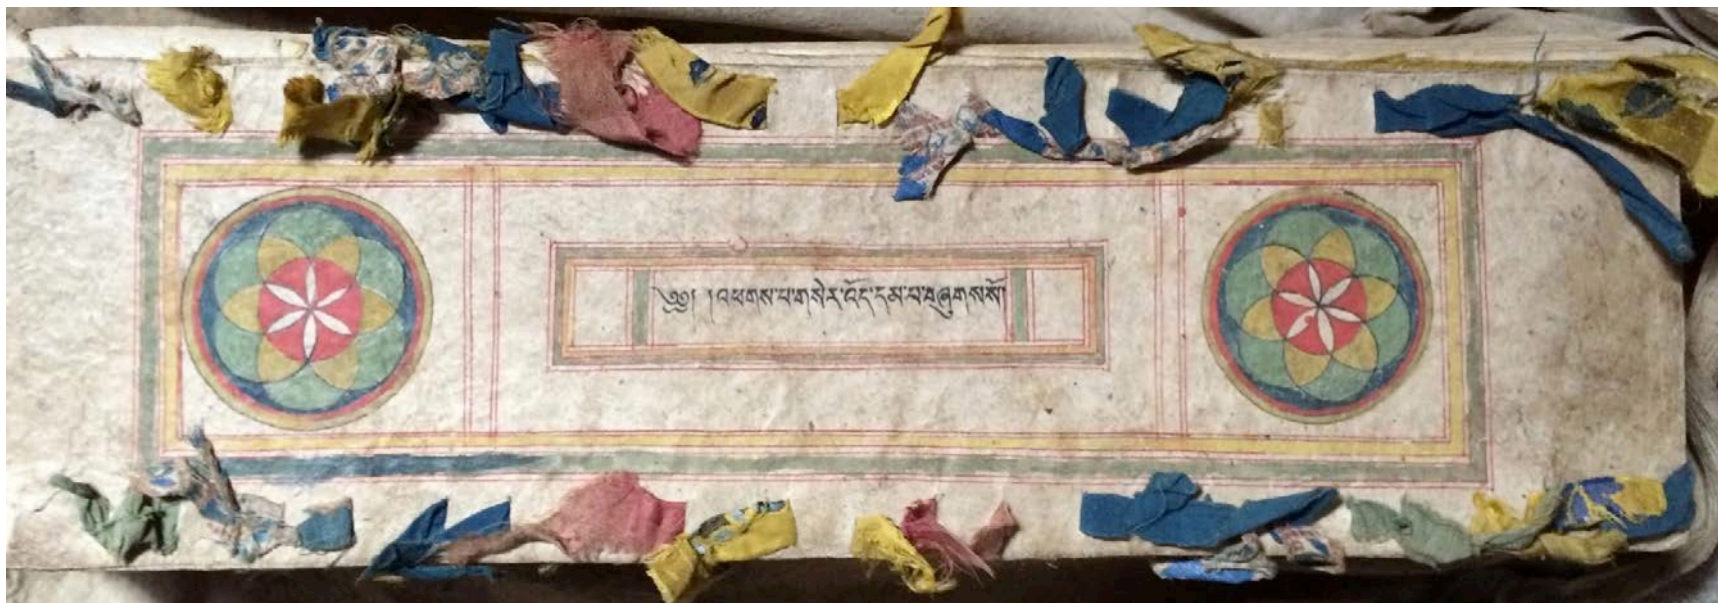 ༄༅། །འཕགས་པ་གསེར་འོད་དམ་པ་བཞུགས་སོ།